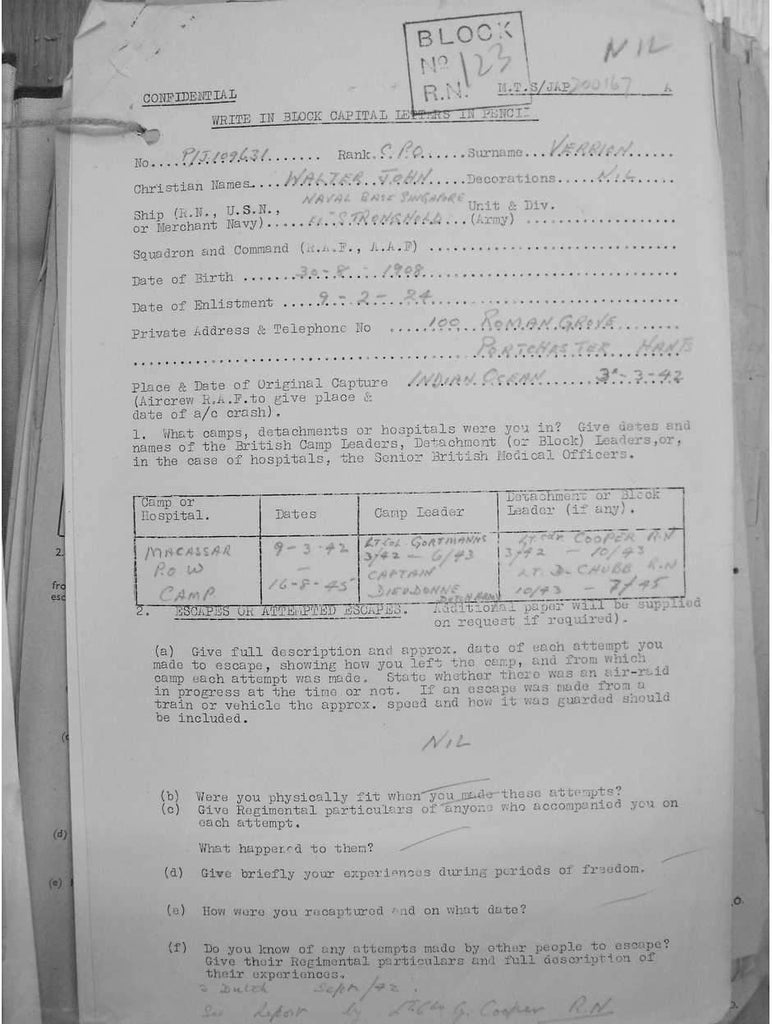 BLOCK
Nº 123
R.N.
NIL
CONFIDENTIAL
M.T.S/JAP 200167 A
WRITE IN BLOCK CAPITAL LETTERS IN PENCIL
No....P/J.109631....... Rank.C.P.O.....Surname...VERRION......
Christian Names....WALTER JOHN....Decorations....NIL.....
NAVAL BASE SINGAPORE
Ship (R.N., U.S.N., Unit & Div.
or Merchant Navy)....STRONGHOLD...(Army)..............
Squadron and Command (R.A.F., A.A.F) ........................
Date of Birth .......30-8-1908.................
Date of Enlistment .....9-2-24..................
Private Address & Telephone No .....100 ROMAN GROVE.......
PORTCHESTER HANTS
Place & Date of Original Capture INDIAN OCEAN......3-3-42
(Aircrew R.A.F.to give place &
date of a/c crash).
1. What camps, detachments or hospitals were you in? Give dates and
names of the British Camp Leaders, Detachment (or Block) Leaders,or,
in the case of hospitals, the Senior British Medical Officers.
Camp or Hospital. Dates Camp Leader Detachment or Block Leader (if any).
MACASSAR 9-3-42 LT COL GORTMANNS LT Cdr COOPER R.N
P.O.W — 3/42 - 6/43 3/42 - 10/43
CAMP 16-8-45 CAPTAIN LT. D. CHUBB R.N
DIEUDONNE 10/43 - 7/45
2. ESCAPES OR ATTEMPTED ESCAPES. Additional paper will be supplied
on request if required).
(a) Give full description and approx. date of each attempt you
made to escape, showing how you left the camp, and from which
camp each attempt was made. State whether there was an air-raid
in progress at the time or not. If an escape was made from a
train or vehicle the approx. speed and how it was guarded should
be included.
NIL
(b) Were you physically fit when you made these attempts?
(c) Give Regimental particulars of anyone who accompanied you on
each attempt.
What happened to them?
(d) Give briefly your experiences during periods of freedom.
(e) How were you recaptured and on what date?
(f) Do you know of any attempts made by other people to escape?
Give their Regimental particulars and full description of
their experiences.
3 Dutch Sept/42.
See Report by Lt Cdr G. Cooper R.N
2.
fro
esc
(d)
(e)